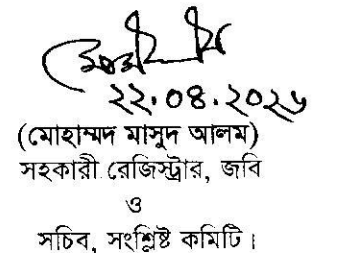 ২২.০৪.২০২৬
(মোহাম্মদ মাসুদ আলম)
সহকারী রেজিস্ট্রার, জবি
ও
সচিব, সংশ্লিষ্ট কমিটি।